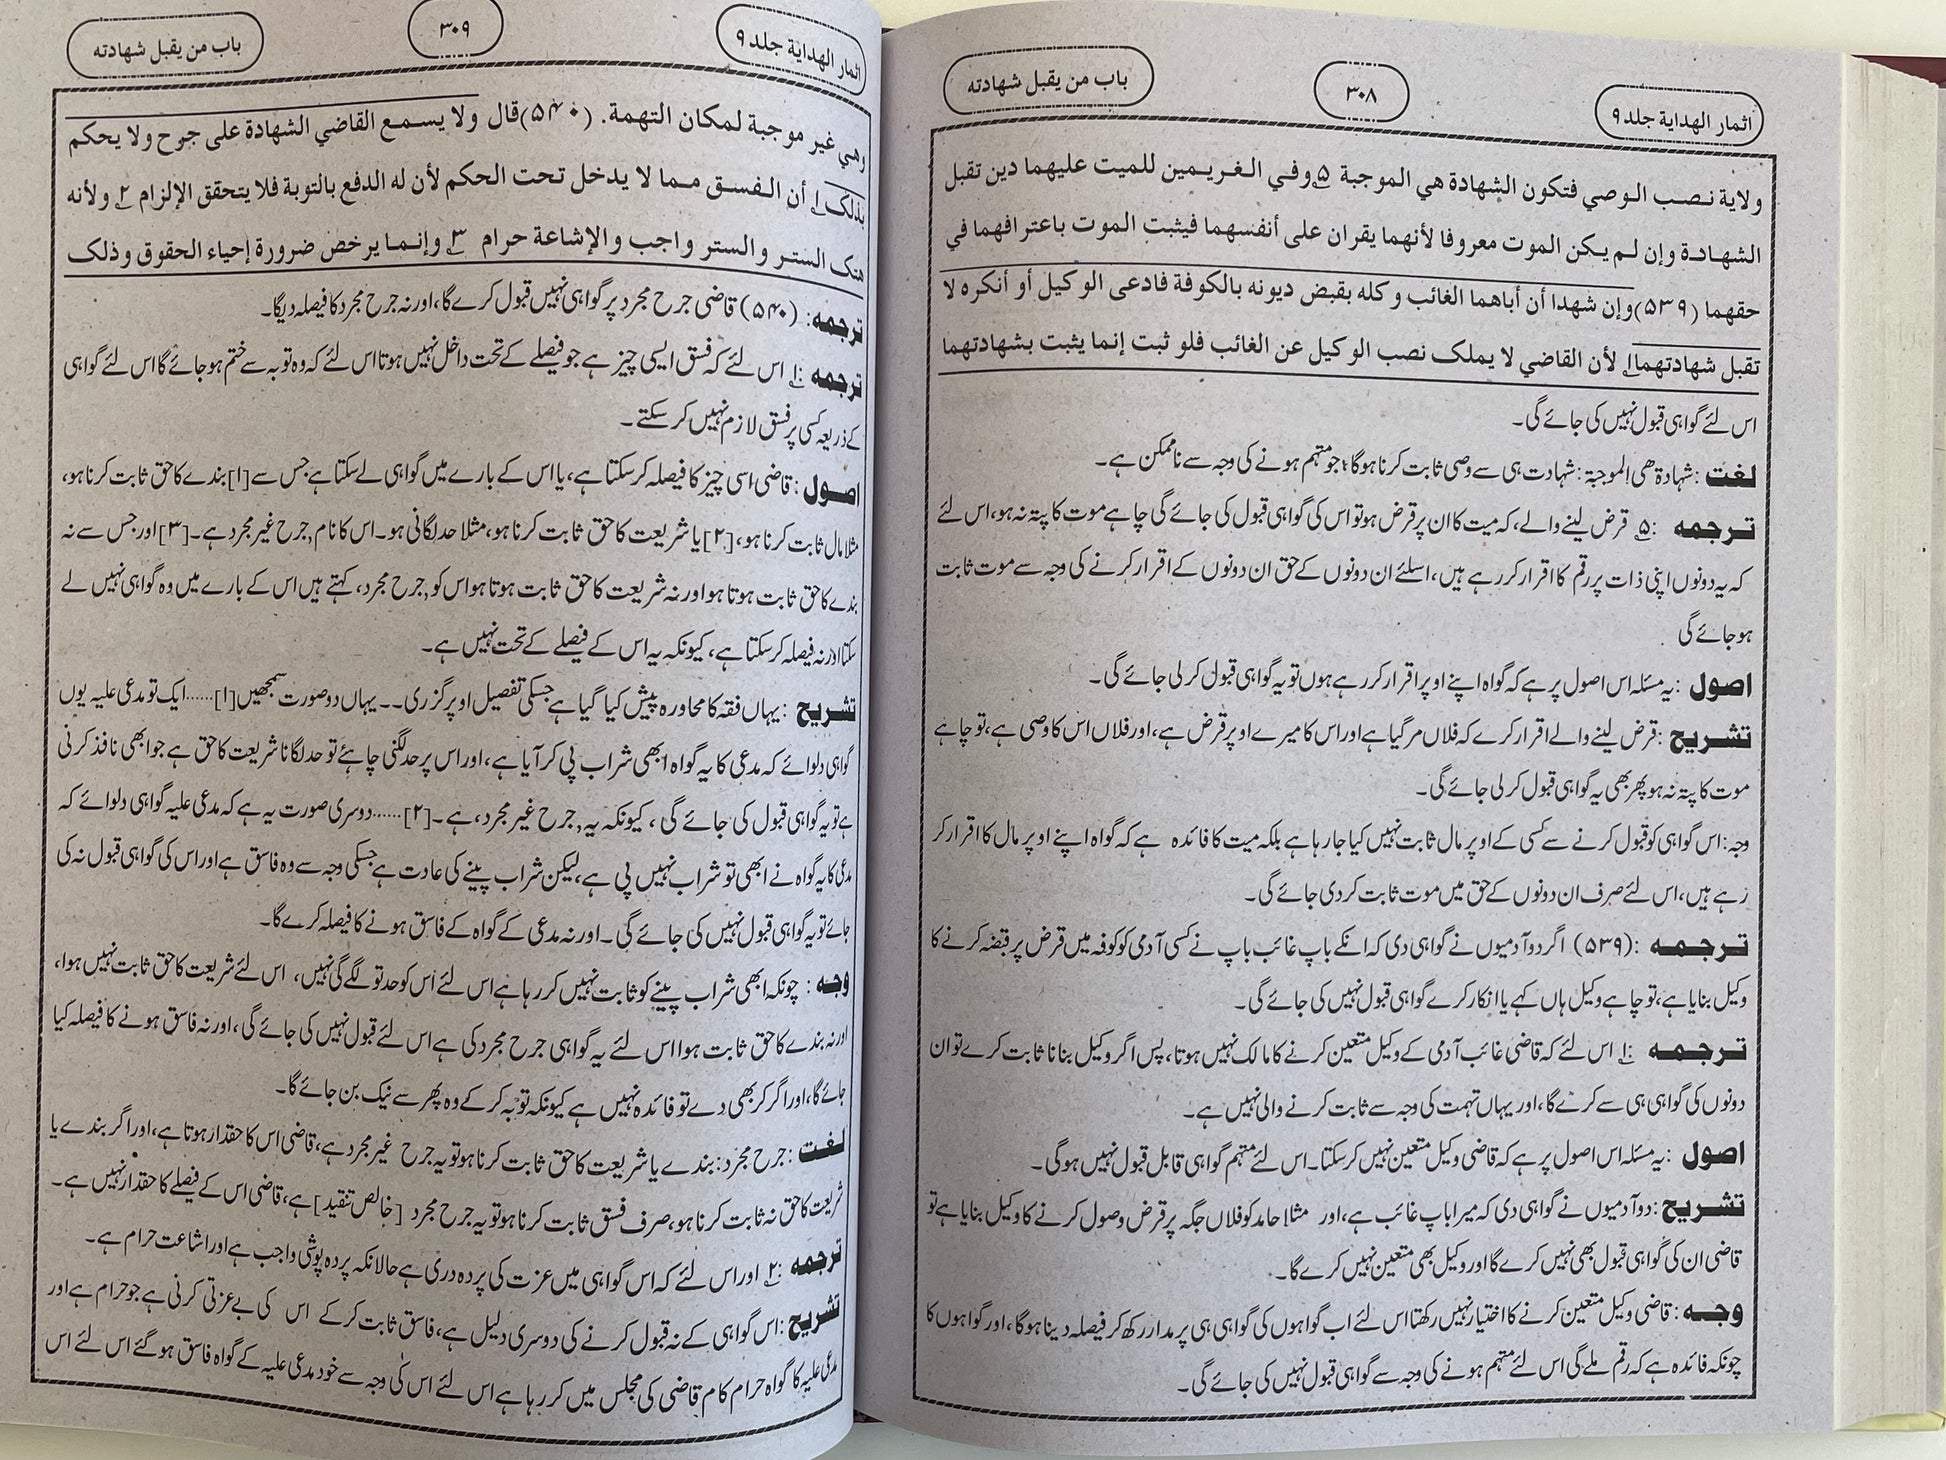 اثمار الهداية جلد ۹
۳۰۸
باب من يقبل شهادته
ولاية نصب الوصي فتكون الشهادة هي الموجبة ۵ وفي الغريمين للميت عليهما دين تقبل
الشهادة وإن لم يكن الموت معروفا لأنهما يقران على أنفسهما فيثبت الموت باعترافهما في
حقهما (۵۳۹) وإن شهدا أن أباهما الغائب وكله بقبض ديونه بالكوفة فادعى الوكيل أو أنكره لا
تقبل شهادتهما ۱ لأن القاضي لا يملک نصب الوكيل عن الغائب فلو ثبت إنما يثبت بشهادتهما
اس لئے گواہی قبول نہیں کی جائے گی۔
لغت : شہادۃ ھی الموجبۃ : شہادت ہی سے وصی ثابت کرنا ہوگا، جو متہم ہونے کی وجہ سے ناممکن ہے۔
ترجمہ : ۵ قرض لینے والے، کہ میت کا ان پر قرض ہو تو اس کی گواہی قبول کی جائے گی چاہے موت کا پتہ نہ ہو، اس لئے
کہ یہ دونوں اپنی ذات پر رقم کا اقرار کر رہے ہیں، اسلئے ان دونوں کے حق ان دونوں کے اقرار کرنے کی وجہ سے موت ثابت
ہو جائے گی
اصول : یہ مسئلہ اس اصول پر ہے کہ گواہ اپنے اوپر اقرار کر رہے ہوں تو یہ گواہی قبول کر لی جائے گی۔
تشریح : قرض لینے والے اقرار کرے کہ فلاں مر گیا ہے اور اس کا میرے اوپر قرض ہے، اور فلاں اس کا وصی ہے، تو چاہے
موت کا پتہ نہ ہو پھر بھی یہ گواہی قبول کر لی جائے گی۔
وجہ : اس گواہی کو قبول کرنے سے کسی کے اوپر مال ثابت نہیں کیا جا رہا ہے بلکہ میت کا فائدہ ہے کہ گواہ اپنے اوپر مال کا اقرار کر
رہے ہیں، اس لئے صرف ان دونوں کے حق میں موت ثابت کر دی جائے گی۔
ترجمہ : (۵۳۹) اگر دو آدمیوں نے گواہی دی کہ انکے باپ غائب باپ نے کسی آدمی کو کوفہ میں قرض پر قبضہ کرنے کا
وکیل بنایا ہے، تو چاہے وکیل ہاں کہے یا انکار کرے گواہی قبول نہیں کی جائے گی۔
ترجمہ : ۱ اس لئے کہ قاضی غائب آدمی کے وکیل متعین کرنے کا مالک نہیں ہوتا، پس اگر وکیل بنانا ثابت کرے تو ان
دونوں کی گواہی ہی سے کرے گا، اور یہاں تہمت کی وجہ سے ثابت کرنے والی نہیں ہے۔
اصول : یہ مسئلہ اس اصول پر ہے کہ قاضی وکیل متعین نہیں کر سکتا۔ اس لئے متہم گواہی قابل قبول نہیں ہوگی۔
تشریح : دو آدمیوں نے گواہی دی کہ میرا باپ غائب ہے، اور مثلا حامد کو فلاں جگہ پر قرض وصول کرنے کا وکیل بنایا ہے تو
قاضی ان کی گواہی قبول بھی نہیں کرے گا اور وکیل بھی متعین نہیں کرے گا۔
وجہ : قاضی وکیل متعین کرنے کا اختیار نہیں رکھتا اس لئے اب گواہوں کی گواہی ہی پر مدار رکھ کر فیصلہ دینا ہوگا، اور گواہوں کا
چونکہ فائدہ ہے کہ رقم ملے گی اس لئے متہم ہونے کی وجہ سے گواہی قبول نہیں کی جائے گی۔
اثمار الهداية جلد ۹
۳۰۹
باب من يقبل شهادته
وهي غير موجبة لمكان التهمة. (۵۴۰) قال ولا يسمع القاضي الشهادة على جرح ولا يحكم
بذلک ۱ أن الفسق مما لا يدخل تحت الحكم لأن له الدفع بالتوبة فلا يتحقق الإلزام ۲ ولأنه
هتک الستر والستر واجب والإشاعة حرام ۳ وإنما يرخص ضرورة إحياء الحقوق وذلک
ترجمہ : (۵۴۰) قاضی جرح مجرد پر گواہی نہیں قبول کرے گا، اور نہ جرح مجرد کا فیصلہ دیگا۔
ترجمہ : ۱ اس لئے کہ فسق ایسی چیز ہے جو فیصلے کے تحت داخل نہیں ہوتا اس لئے کہ وہ توبہ سے ختم ہو جائے گا اس لئے گواہی
کے ذریعہ کسی پر فسق لازم نہیں کر سکتے۔
اصول : قاضی اسی چیز کا فیصلہ کر سکتا ہے، یا اس کے بارے میں گواہی لے سکتا ہے جس سے [۱] بندے کا حق ثابت کرنا ہو،
مثلا مال ثابت کرنا ہو، [۲] یا شریعت کا حق ثابت کرنا ہو، مثلا حد لگانی ہو۔ اس کا نام، جرح غیر مجرد ہے۔ [۳] اور جس سے نہ
بندے کا حق ثابت ہوتا ہو اور نہ شریعت کا حق ثابت ہوتا ہو اس کو، جرح مجرد، کہتے ہیں اس کے بارے میں وہ گواہی نہیں لے
سکتا اور نہ فیصلہ کر سکتا ہے، کیونکہ یہ اس کے فیصلے کے تحت نہیں ہے۔
تشریح : یہاں فقہ کا محاورہ پیش کیا گیا ہے جسکی تفصیل اوپر گزری۔۔ یہاں دو صورت سمجھیں [۱]......ایک تو مدعی علیہ یوں
گواہی دلوائے کہ مدعی کا یہ گواہ ابھی شراب پی کر آیا ہے، اور اس پر حد لگنی چاہئے تو حد لگانا شریعت کا حق ہے جو ابھی نافذ کرنی
ہے تو یہ گواہی قبول کی جائے گی، کیونکہ یہ، جرح غیر مجرد، ہے۔ [۲]......دوسری صورت یہ ہے کہ مدعی علیہ گواہی دلوائے کہ
مدعی کا یہ گواہ نے ابھی تو شراب نہیں پی ہے، لیکن شراب پینے کی عادت ہے جسکی وجہ سے وہ فاسق ہے اور اس کی گواہی قبول نہ کی
جائے تو یہ گواہی قبول نہیں کی جائے گی۔ اور نہ مدعی کے گواہ کے فاسق ہونے کا فیصلہ کرے گا۔
وجہ : چونکہ ابھی شراب پینے کو ثابت نہیں کر رہا ہے اس لئے اس کو حد تو لگے گی نہیں، اس لئے شریعت کا حق ثابت نہیں ہوا،
اور نہ بندے کا حق ثابت ہوا اس لئے یہ گواہی جرح مجرد کی ہے اس لئے قبول نہیں کی جائے گی، اور نہ فاسق ہونے کا فیصلہ کیا
جائے گا، اور اگر کر بھی دے تو فائدہ نہیں ہے کیونکہ توبہ کر کے وہ پھر سے نیک بن جائے گا۔
لغت : جرح مجرد : بندے یا شریعت کا حق ثابت کرنا ہو تو یہ جرح غیر مجرد ہے، قاضی اس کا حقدار ہوتا ہے، اور اگر بندے یا
شریعت کا حق نہ ثابت کرنا ہو، صرف فسق ثابت کرنا ہو تو یہ جرح مجرد [خالص تنقید] ہے، قاضی اس کے فیصلے کا حقدار نہیں ہے۔
ترجمہ : ۲ اور اس لئے کہ اس گواہی میں عزت کی پردہ دری ہے حالانکہ پردہ پوشی واجب ہے اور اشاعت حرام ہے۔
تشریح : اس گواہی کے نہ قبول کرنے کی دوسری دلیل ہے، فاسق ثابت کر کے اس کی بے عزتی کرنی ہے جو حرام ہے اور
مدعی علیہ کا گواہ حرام کام قاضی کی مجلس میں کر رہا ہے اس لئے اس کی وجہ سے خود مدعی علیہ کے گواہ فاسق ہو گئے اس لئے اس